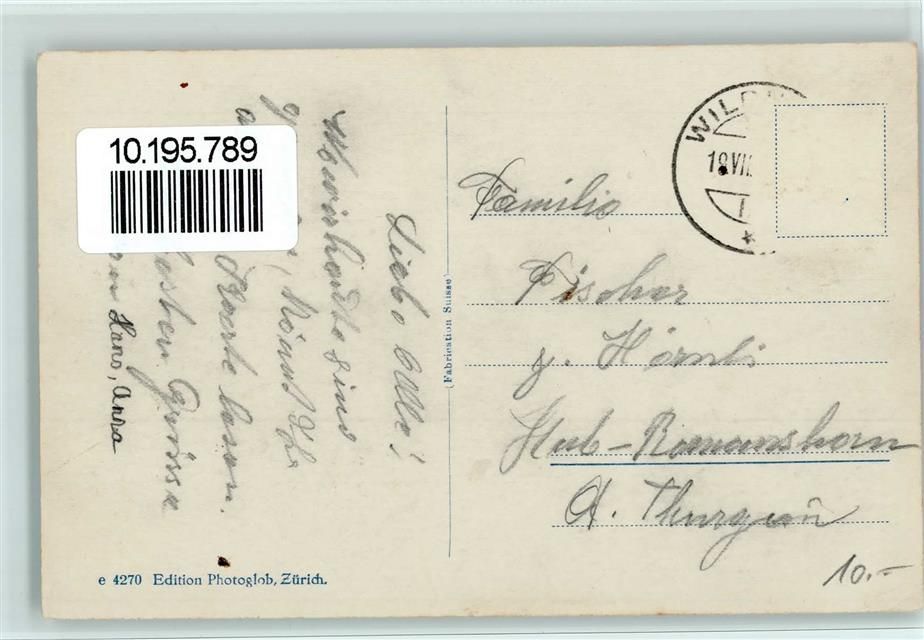 10.195.789
Liebe Alle!
sind
Könnt Ihr
Karte lesen.
besten Grüsse
Hans, Anna
Fabrication Suisse
WILD
18 VII
Familie
Fischer
z. Hörnli
Hub-Romanshorn
Kt. Thurgau
10.-
e 4270 Edition Photoglob, Zürich.